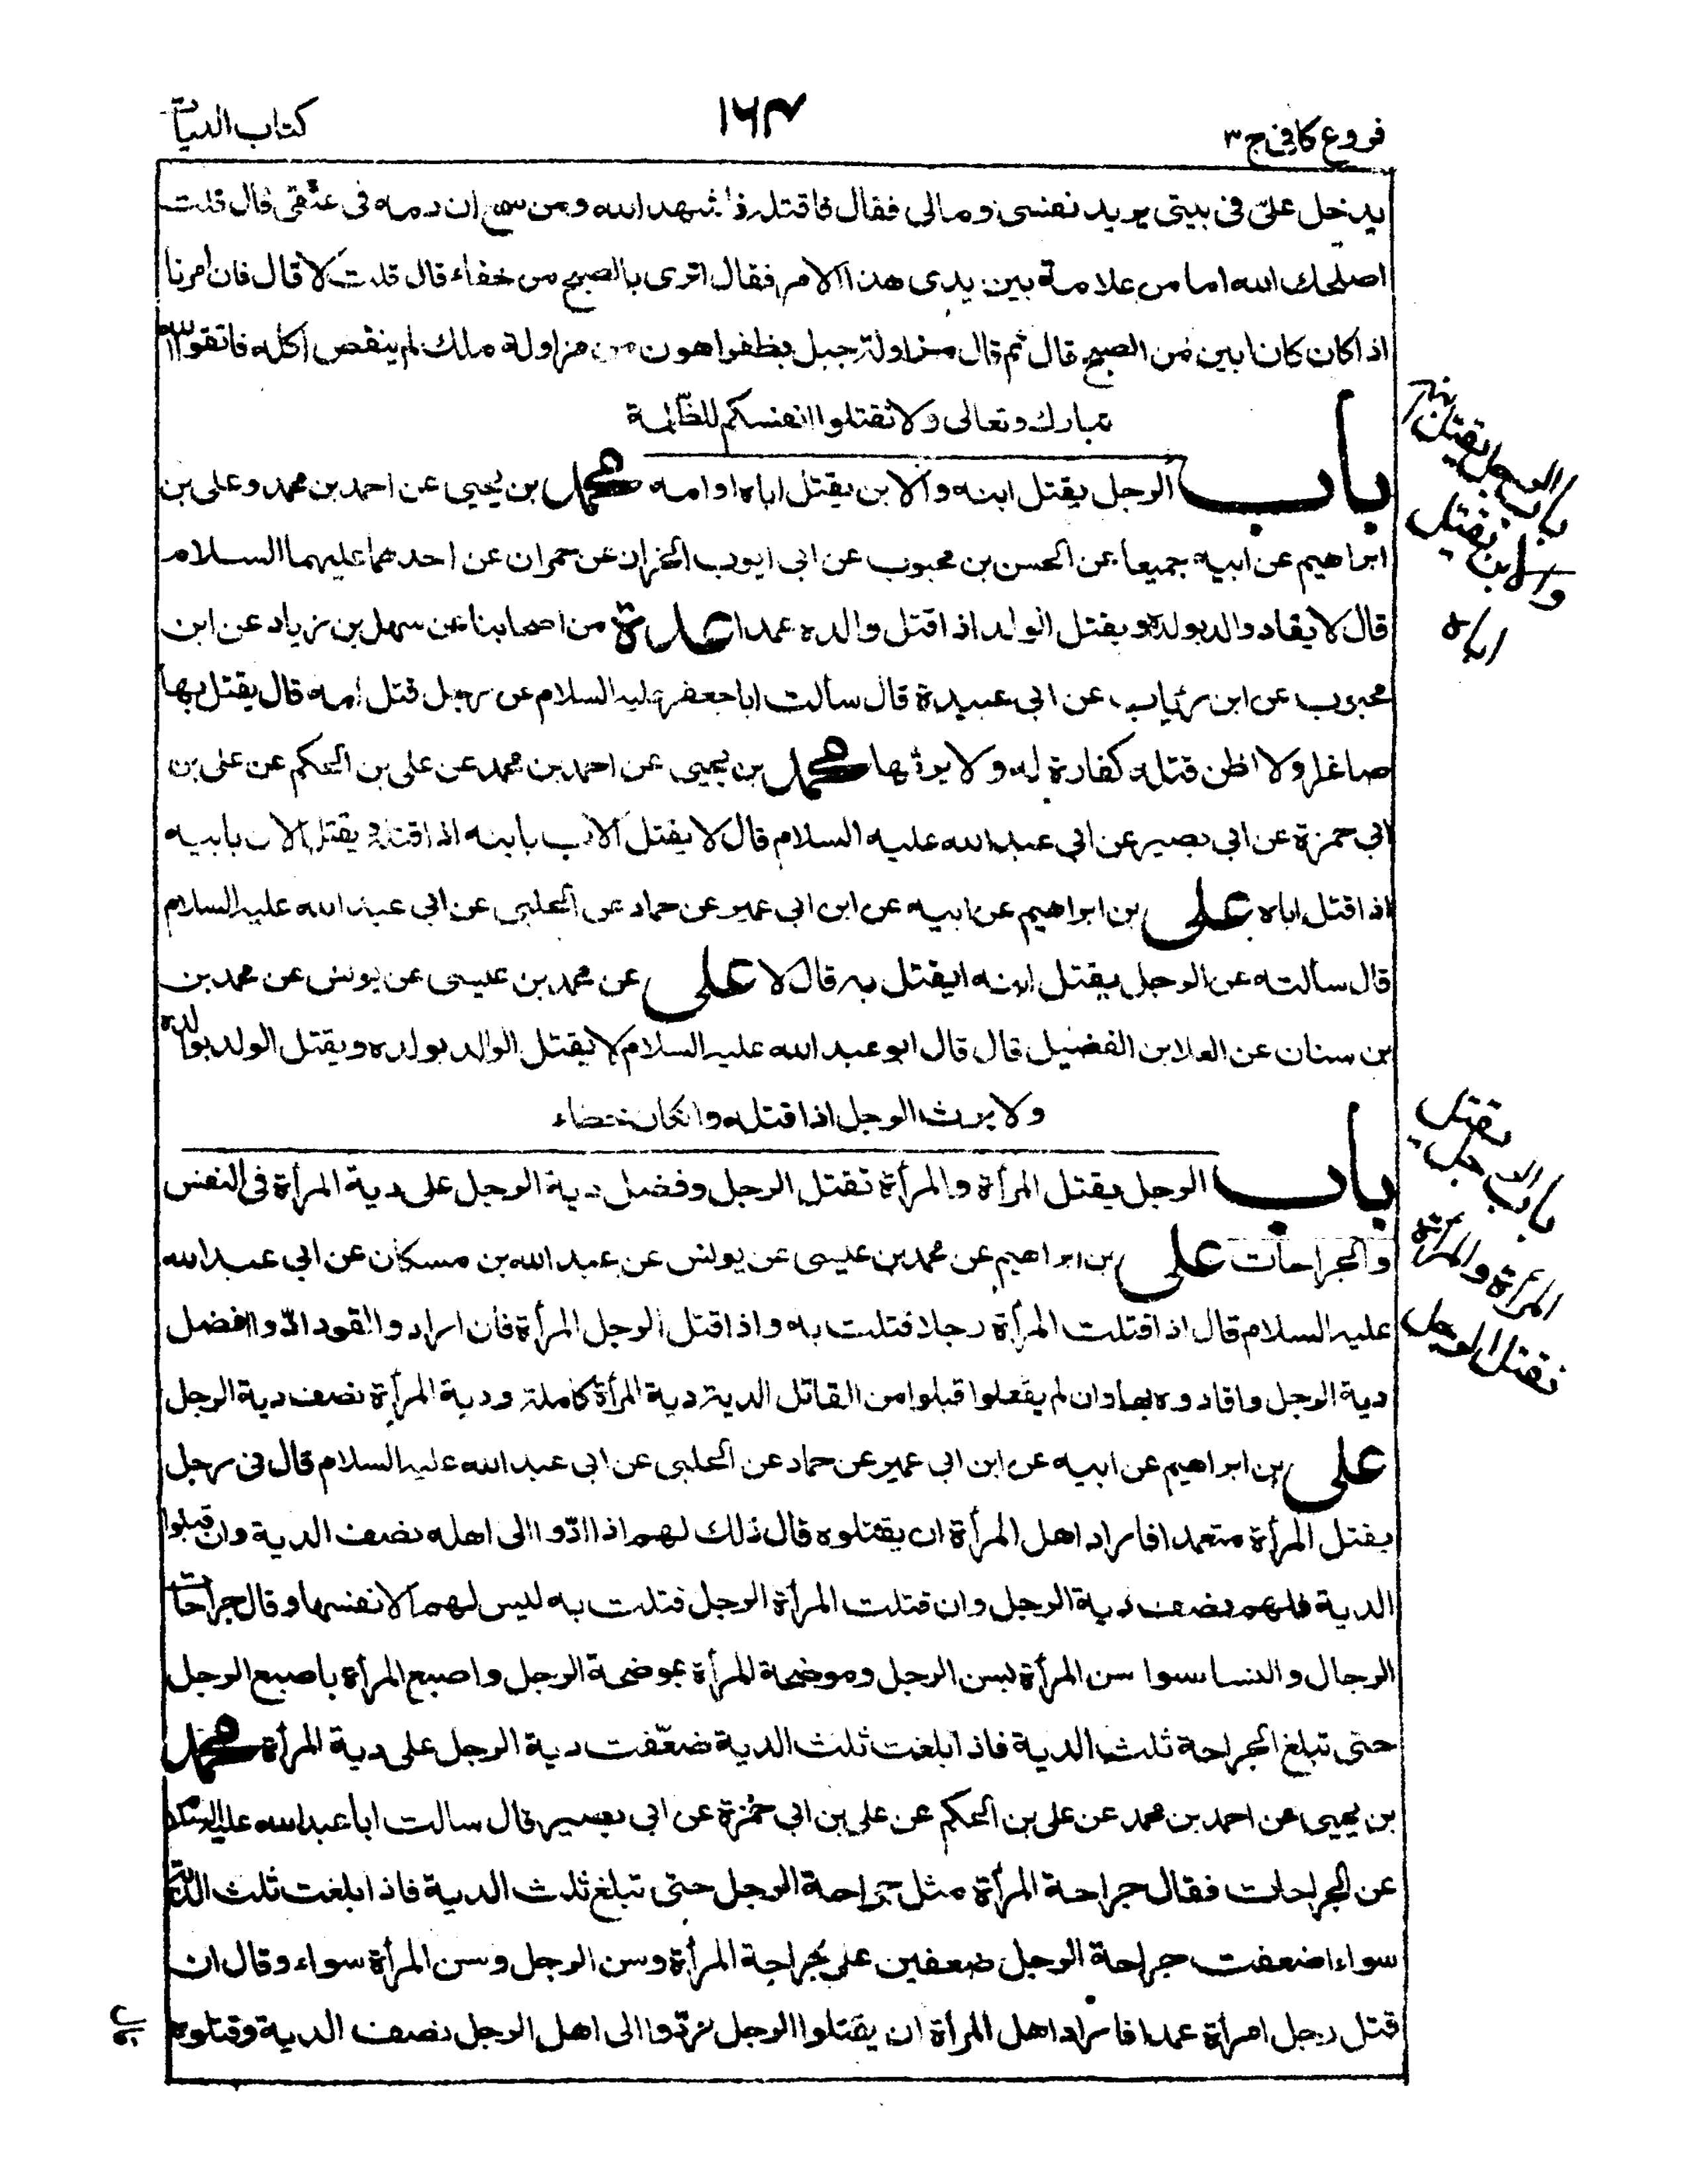 فروع كافى ج ٣
١٦٣
كتاب الديات
يدخل علىّ فى بيتى يريد نفسى ومالى فقال فاقتله فاشهد الله ومن سمع ان دمه فى عنقى قال قلت
اصلحك الله اما من علامة بين يدى هذا الامر فقال اترى بالصبح من خفاء قال قلت لا قال فان امرنا
اذا كان كان ابين من الصبح قال ثم قال مزاولة جبل بظفر اهون من مزاولة ملك لم ينقص اكله فاتقوا الله
تبارك وتعالى ولا تقتلوا انفسكم للظّلمة
باب الرجل يقتل ابنه والابن يقتل اباه او امه محمد بن يحيى عن احمد بن محمد وعلى بن
ابراهيم عن ابيه جميعا عن الحسن بن محبوب عن ابى ايوب الخزان عن حمران عن احدهما عليهما السلام
قال لا يقاد والد بولده ويقتل الولد اذا قتل والده عمدا عدة من اصحابنا عن سهل بن زياد عن ابن
محبوب عن ابن رئاب عن ابى عبيدة قال سألت ابا جعفر عليه السلام عن رجل قتل امه قال يقتل بها
صاغرا ولا اظن قتله كفارة له ولا يرثها محمد بن يحيى عن احمد بن محمد عن على بن الحكم عن على بن
ابى حمزة عن ابى بصير عن ابى عبد الله عليه السلام قال لا يقتل الاب بابنه اذا قتله ويقتل الابن بابيه
اذا قتل اباه على بن ابراهيم عن ابيه عن ابن ابى عمير عن حماد عن الحلبى عن ابى عبد الله عليه السلام
قال سألته عن الرجل يقتل ابنه ايقتل به قال لا على عن محمد بن عيسى عن يونس عن محمد بن
بن سنان عن العلا بن الفضيل قال قال ابو عبد الله عليه السلام لا يقتل الوالد بولده ويقتل الولد بوالده
ولا يرث الرجل اذا قتله وانكان خطاء
باب الرجل يقتل المرأة والمرأة تقتل الرجل وفضل دية الرجل على دية المرأة فى النفس
والجراحات على بن ابراهيم عن محمد بن عيسى عن يونس عن عبد الله بن مسكان عن ابى عبد الله
عليه السلام قال اذا قتلت المرأة رجلا قتلت به واذا قتل الرجل المرأة فان ارادوا القود ادّوا فضل
دية الرجل واقادوه بها وان لم يفعلوا قبلوا من القاتل الدية دية المرأة كاملة ودية المرأة نصف دية الرجل
على بن ابراهيم عن ابيه عن ابن ابى عمير عن حماد عن الحلبى عن ابى عبد الله عليه السلام قال فى رجل
يقتل المرأة متعمدا فاراد اهل المرأة ان يقتلوه قال ذلك لهم اذا ادّوا الى اهله نصف الدية وان قبلوا
الدية فلهم نصف دية الرجل وان قتلت المرأة الرجل قتلت به ليس لهم الا نفسها وقال جراحات
الرجال والنسا سوا سن المرأة بسن الرجل وموضحة المرأة بموضحة الرجل واصبع المرأة باصبع الرجل
حتى تبلغ الجراحة ثلث الدية فاذا بلغت ثلث الدية ضعّفت دية الرجل على دية المرأة محمد
بن يحيى عن احمد بن محمد عن على بن الحكم عن على بن ابى حمزة عن ابى بصير قال سالت ابا عبد الله عليه السلام
عن الجراحات فقال جراحة المرأة مثل جراحة الرجل حتى تبلغ ثلث الدية فاذا بلغت ثلث الدية
سواء اضعفت جراحة الرجل ضعفين على جراحة المرأة وسن الرجل وسن المرأة سواء وقال ان
قتل رجل امرأة عمدا فاراد اهل المرأة ان يقتلوا الرجل ردّوا الى اهل الرجل نصف الدية وقتلوه
باب الرجل يقتل
والابن يقتل
اباه
باب الرجل يقتل
المرأة والمرأة
تقتل الرجل